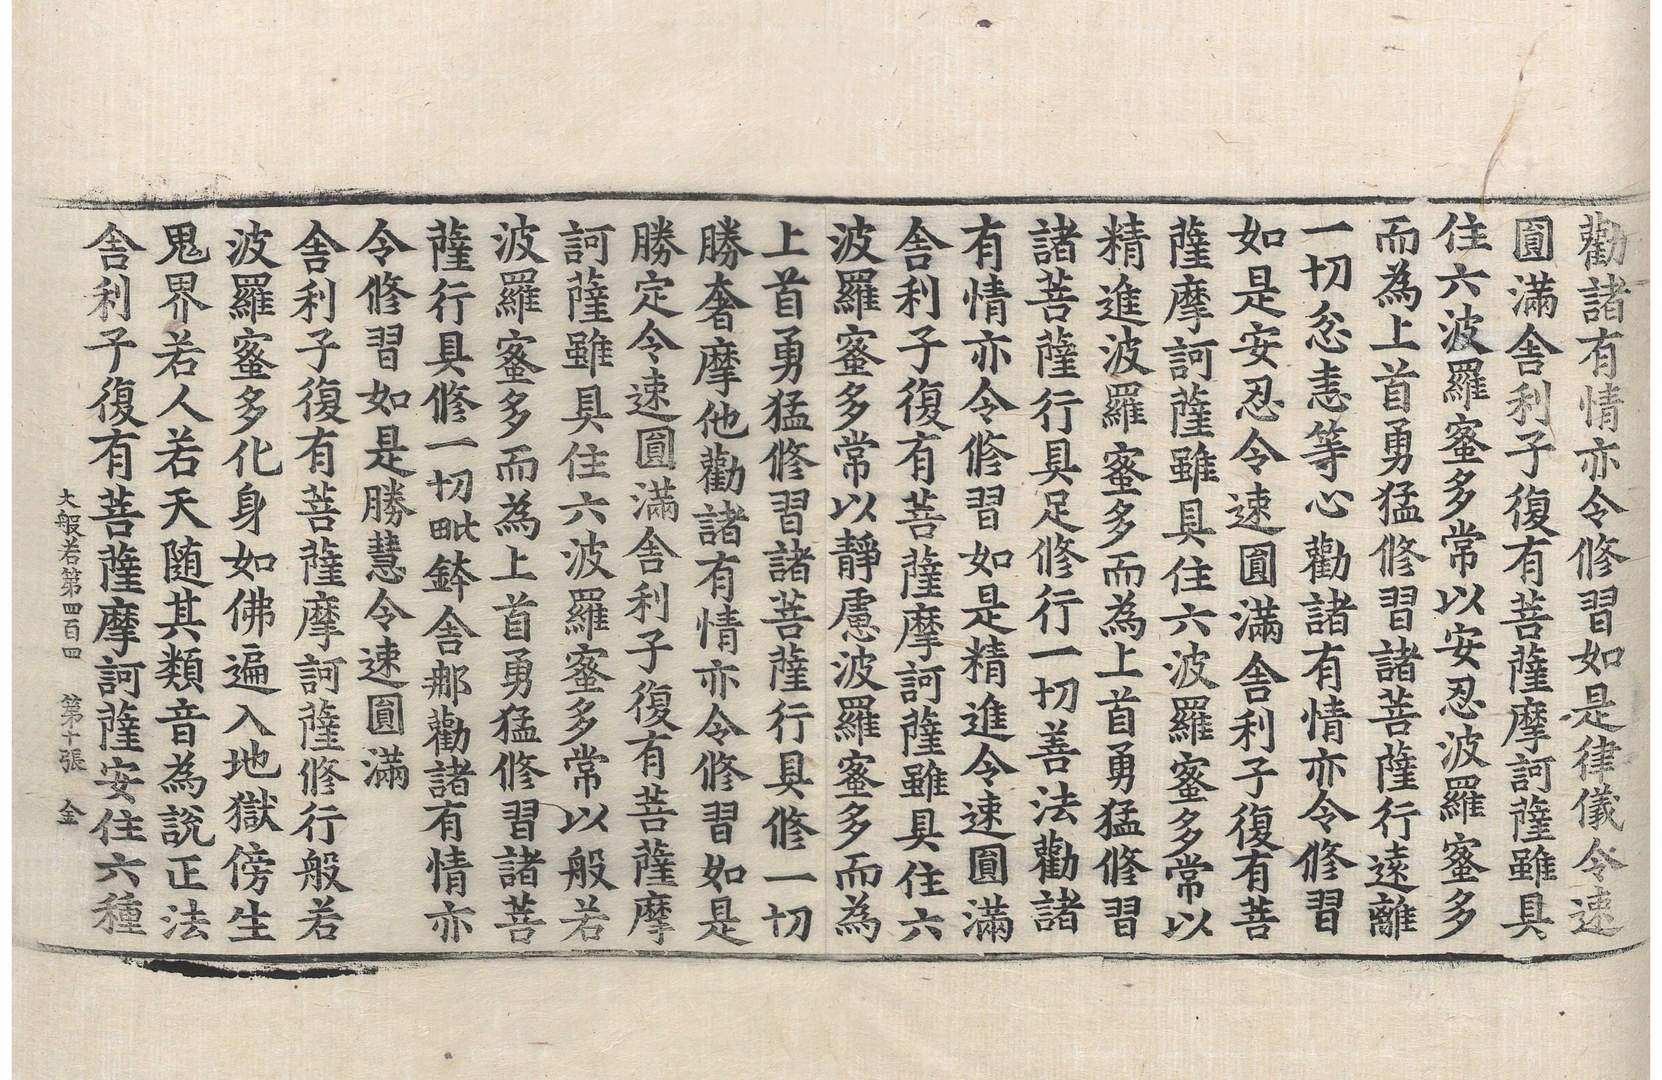 勸諸有情亦令修習如是律儀令速
圓滿舍利子復有菩薩摩訶薩雖具
住六波羅蜜多常以安忍波羅蜜多
而為上首勇猛修習諸菩薩行遠離
一切忿恚等心勸諸有情亦令修習
如是安忍令速圓滿舍利子復有菩
薩摩訶薩雖具住六波羅蜜多常以
精進波羅蜜多而為上首勇猛修習
諸菩薩行具足修行一切善法勸諸
有情亦令修習如是精進令速圓滿
舍利子復有菩薩摩訶薩雖具住六
波羅蜜多常以靜慮波羅蜜多而為
上首勇猛修習諸菩薩行具修一切
勝奢摩他勸諸有情亦令修習如是
勝定令速圓滿舍利子復有菩薩摩
訶薩雖具住六波羅蜜多常以般若
波羅蜜多而為上首勇猛修習諸菩
薩行具修一切毗鉢舍那勸諸有情亦
令修習如是勝慧令速圓滿
舍利子復有菩薩摩訶薩修行般若
波羅蜜多化身如佛遍入地獄傍生
鬼界若人若天随其類音為說正法
舍利子復有菩薩摩訶薩安住六種
大般若第四百四 第十張 金